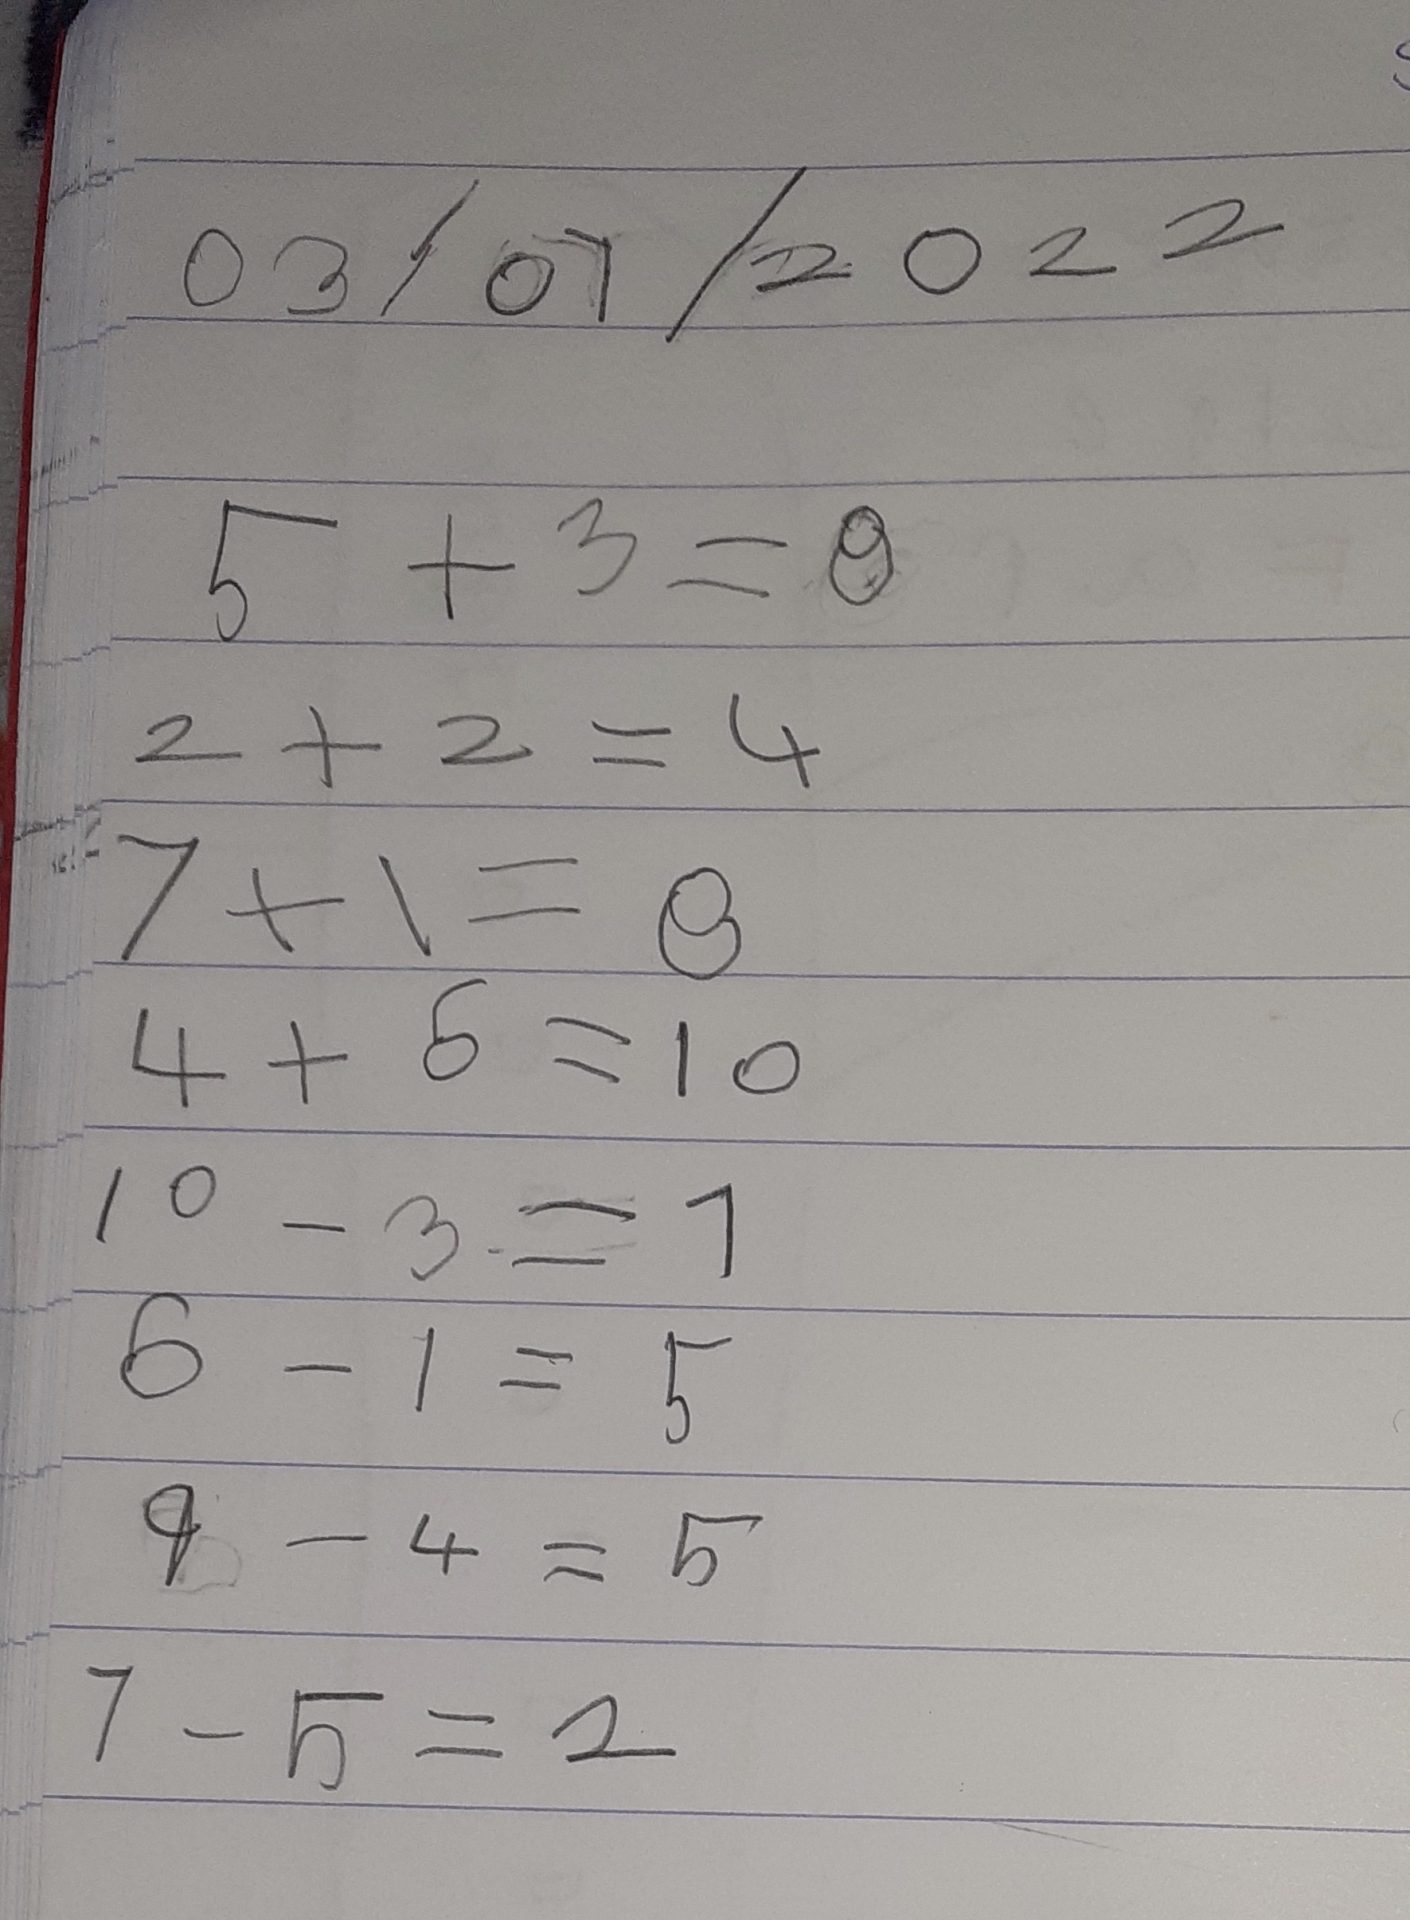 03/07/2022
5 + 3 = 8
2 + 2 = 4
7 + 1 = 8
4 + 6 = 10
10 - 3 = 7
6 - 1 = 5
9 - 4 = 5
7 - 5 = 2